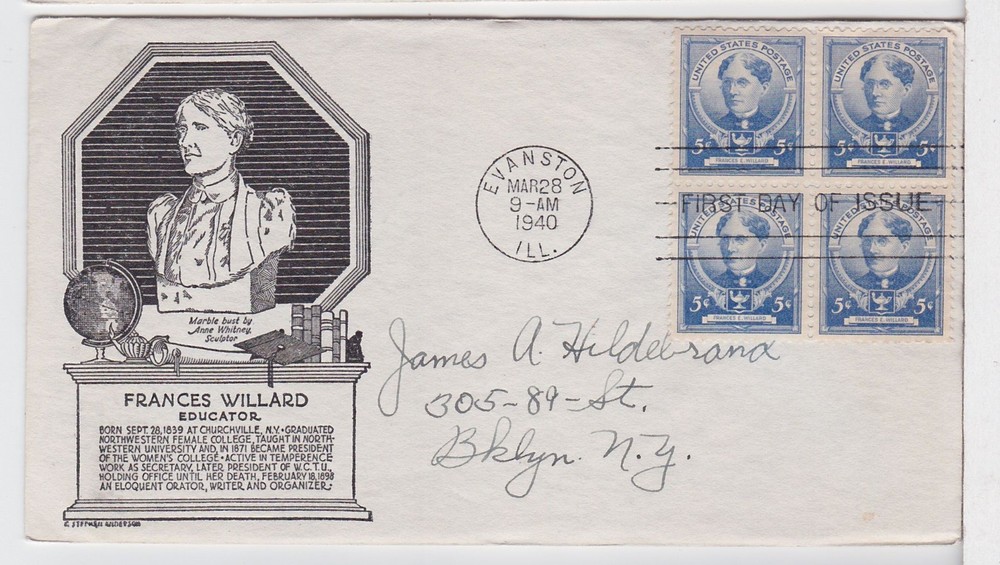 UNITED STATES POSTAGE
5¢ 5¢
FRANCES E. WILLARD
UNITED STATES POSTAGE
5¢ 5¢
FRANCES E. WILLARD
EVANSTON
MAR 28
9-AM
1940
ILL.
FIRST DAY OF ISSUE
UNITED STATES POSTAGE
5¢ 5¢
FRANCES E. WILLARD
UNITED STATES POSTAGE
5¢ 5¢
FRANCES E. WILLARD
Marble bust by
Anne Whitney,
Sculptor
James A. Hildebrand
305-89-St.
Bklyn. N.Y.
FRANCES WILLARD
EDUCATOR
BORN SEPT. 28, 1839 AT CHURCHVILLE, N.Y. • GRADUATED
NORTHWESTERN FEMALE COLLEGE, TAUGHT IN NORTH-
WESTERN UNIVERSITY AND, IN 1871 BECAME PRESIDENT
OF THE WOMEN'S COLLEGE • ACTIVE IN TEMPERENCE
WORK AS SECRETARY, LATER PRESIDENT OF W.C.T.U.,
HOLDING OFFICE UNTIL HER DEATH, FEBRUARY 18, 1898
AN ELOQUENT ORATOR, WRITER AND ORGANIZER.
C. STEPHEN ANDERSON